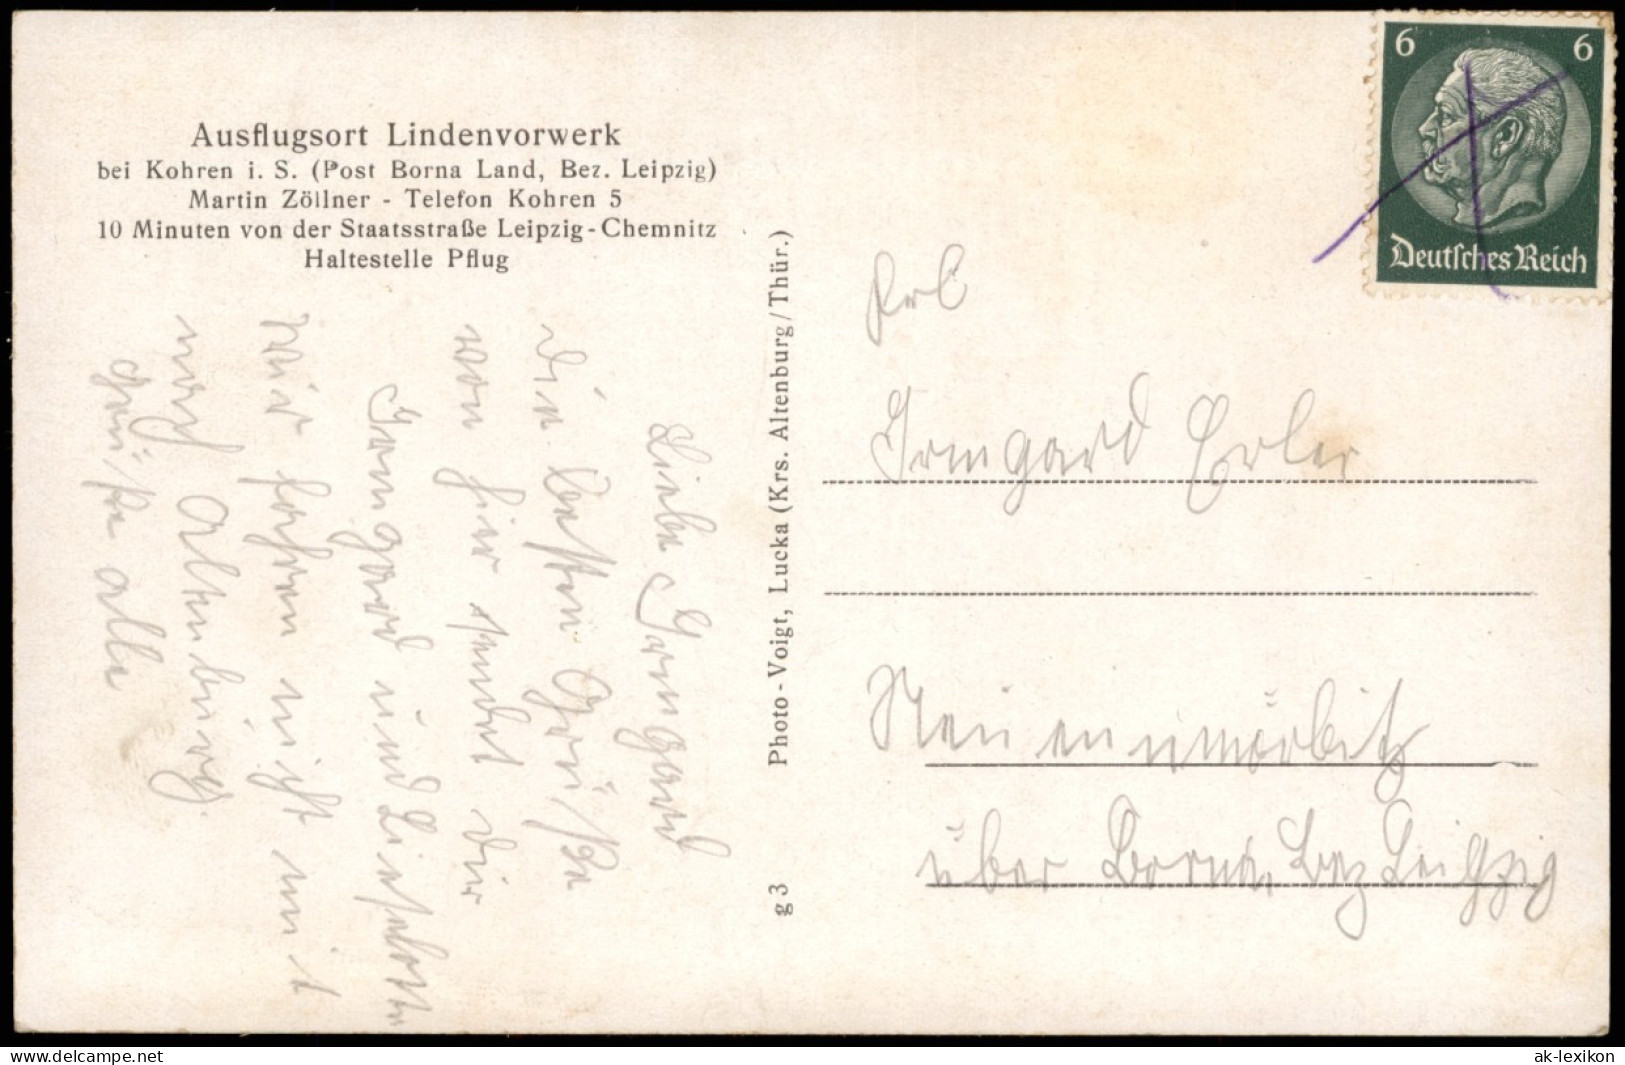 Ausflugsort Lindenvorwerk
bei Kohren i. S. (Post Borna Land, Bez. Leipzig)
Martin Zöllner - Telefon Kohren 5
10 Minuten von der Staatsstraße Leipzig-Chemnitz
Haltestelle Pflug
Liebe Irmgard
die besten Grüße
von hier sendet dir
Irmgard und Liselotte
wir fahren nicht mit
nach Altenburg.
Grüße alle
Photo-Voigt, Lucka (Krs. Altenburg/Thür.)
g 3
6 6
Deutsches Reich
Frl
Irmgard Erler
Neuenmörbitz
über Borna, Bez Leipzig
www.delcampe.net
ak-lexikon